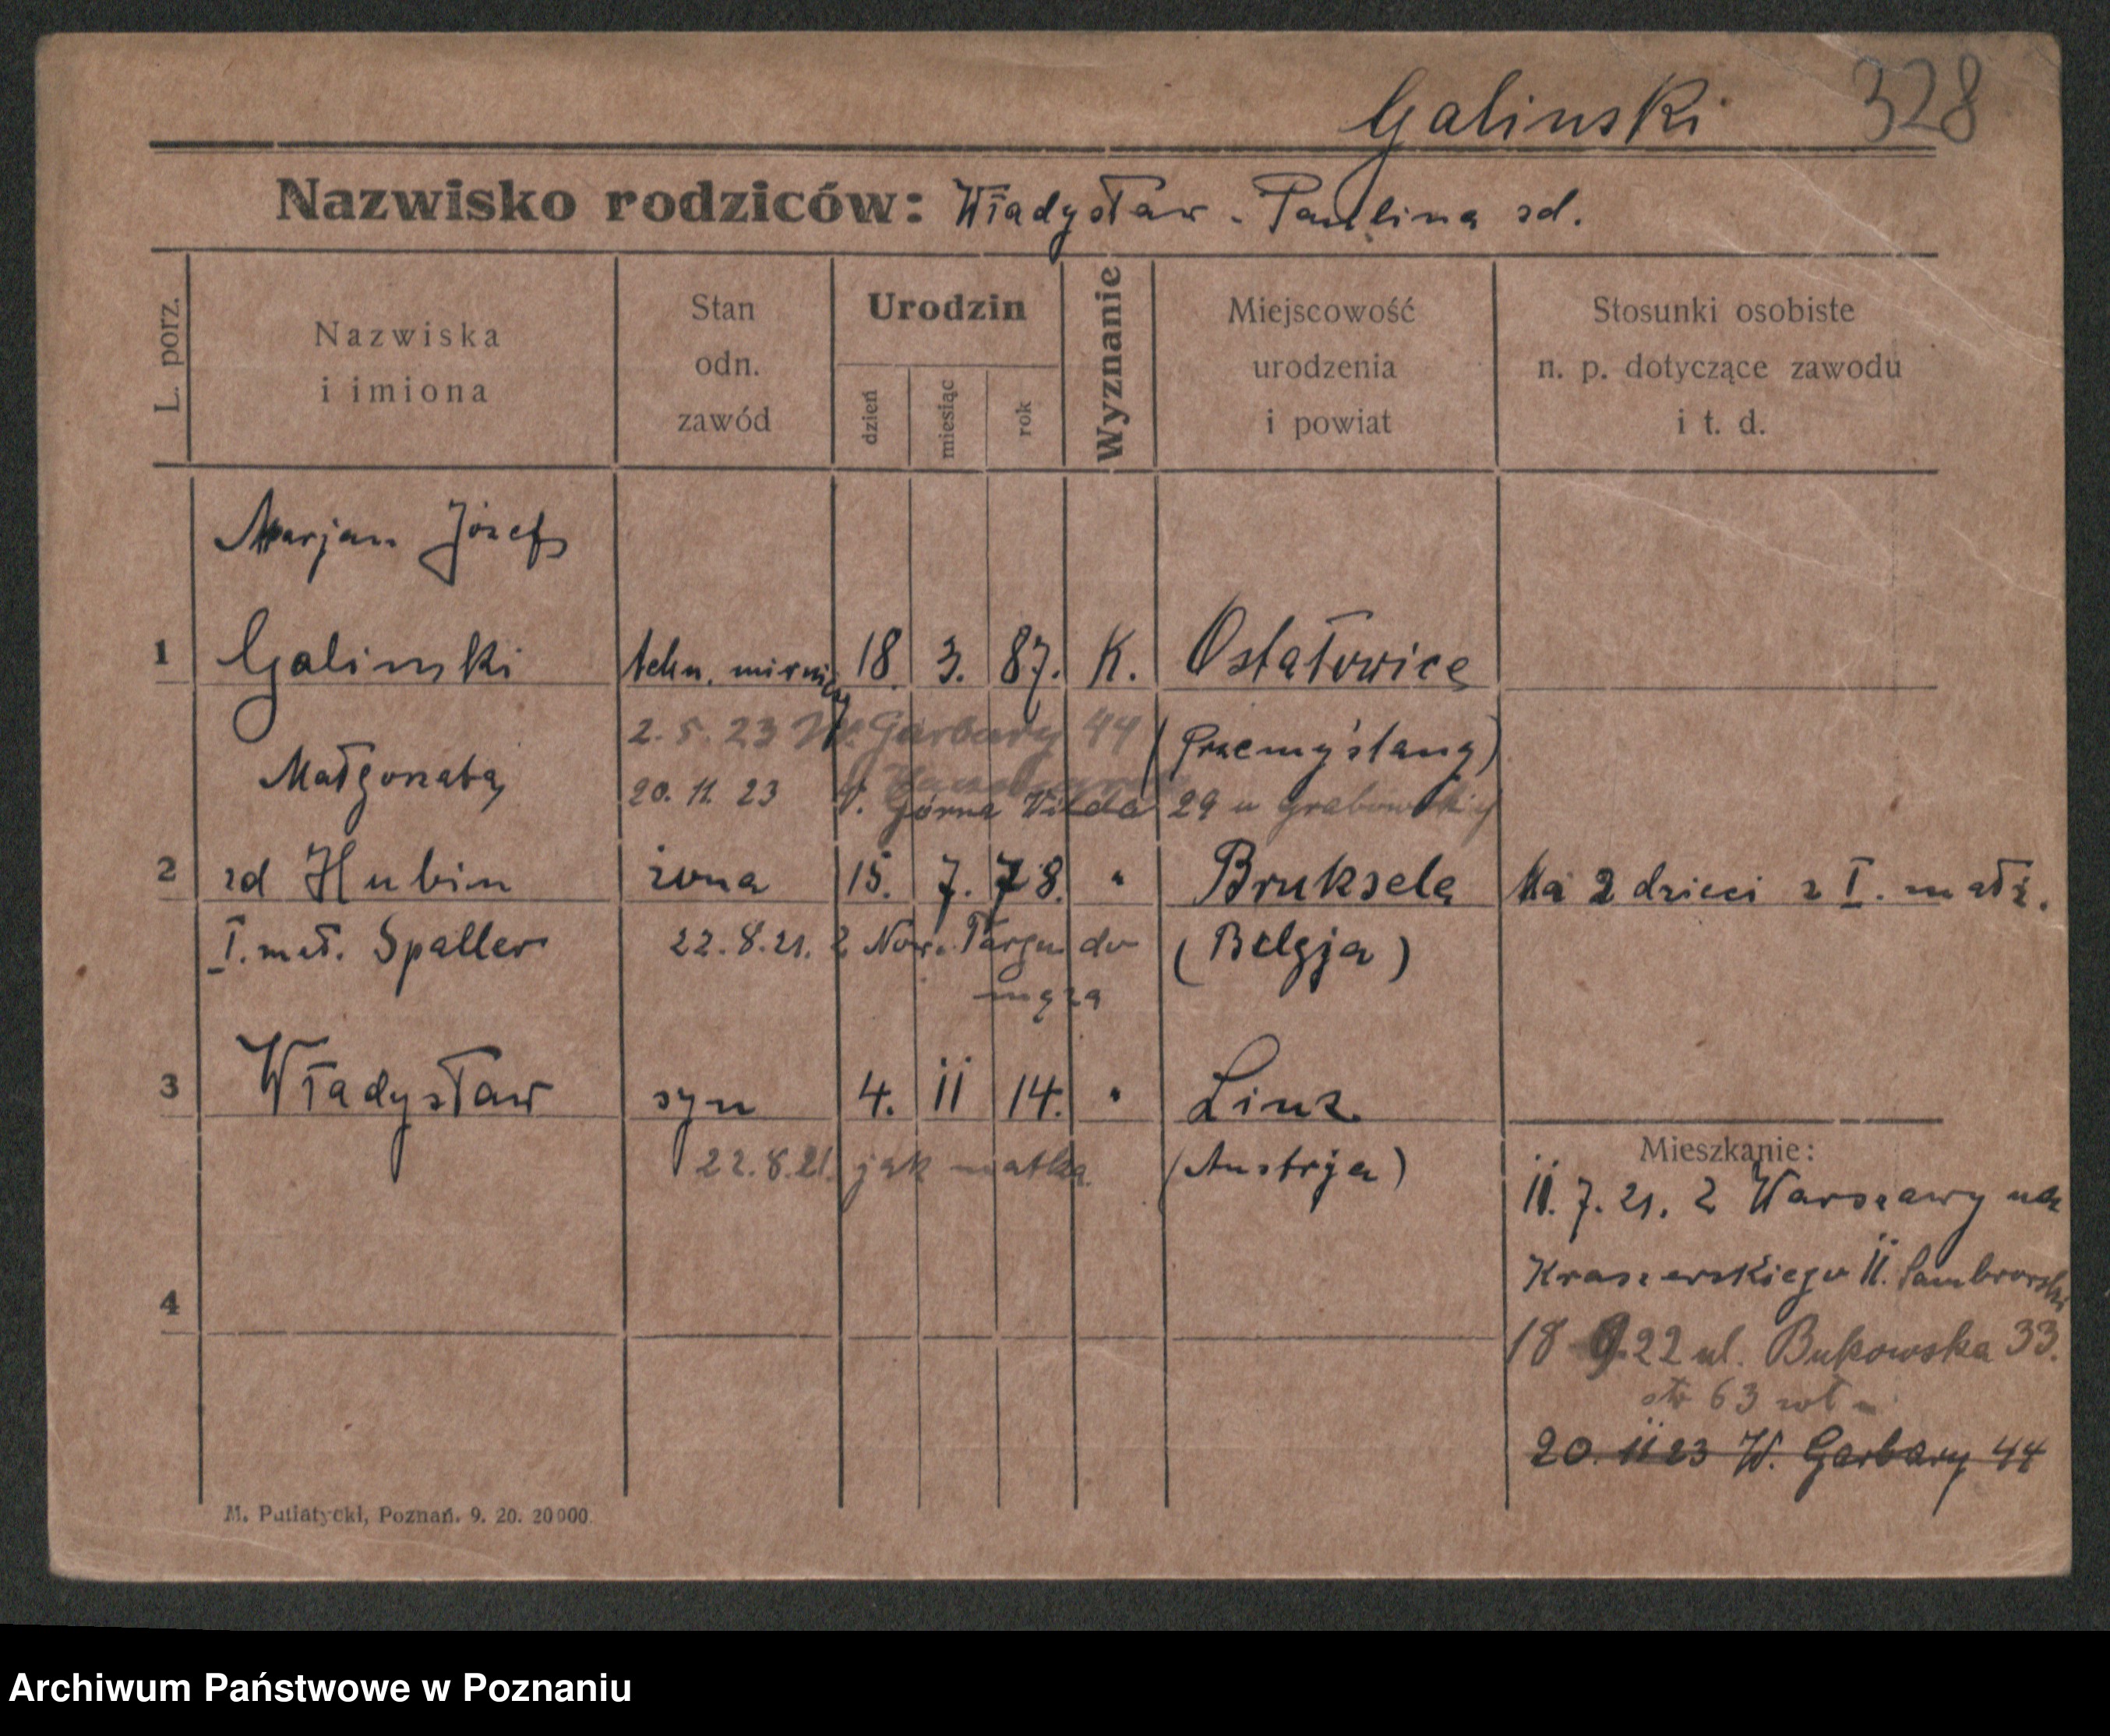 Galinski 328
Nazwisko rodziców: Władysław - Paulina zd.
L. porz.
Nazwiska
i imiona
Stan
odn.
zawód
Urodzin
dzień
miesiąc
rok
Wyznanie
Miejscowość
urodzenia
i powiat
Stosunki osobiste
n. p. dotyczące zawodu
i t. d.
Marjan Józef
1 Galinski techn. mierniczy 18. 3. 87. K. Ostałowice
2. 5. 23 W. Garbary 44 (Przemyślany)
Małgorzata
20. 11. 23 Górna Wilda 29 u Grabowskiej
2 zd Hubin żona 15. 7. 78. " Bruksela Ma 2 dzieci z I. małż.
I. mał. Spaller 22. 8. 21. z Now. Targu do (Belgja)
męża
3 Władysław syn 4. 11 14. " Linz
22. 8. 21. jak matka (Austrja)
Mieszkanie:
11. 7. 21. z Warszawy na
Kraszewskiego 11.
4
18 9. 22 ul. Bukowska 33.
63
20. 11 23 W. Garbary 44
M. Putiatycki, Poznań. 9. 20. 20000.
Archiwum Państwowe w Poznaniu